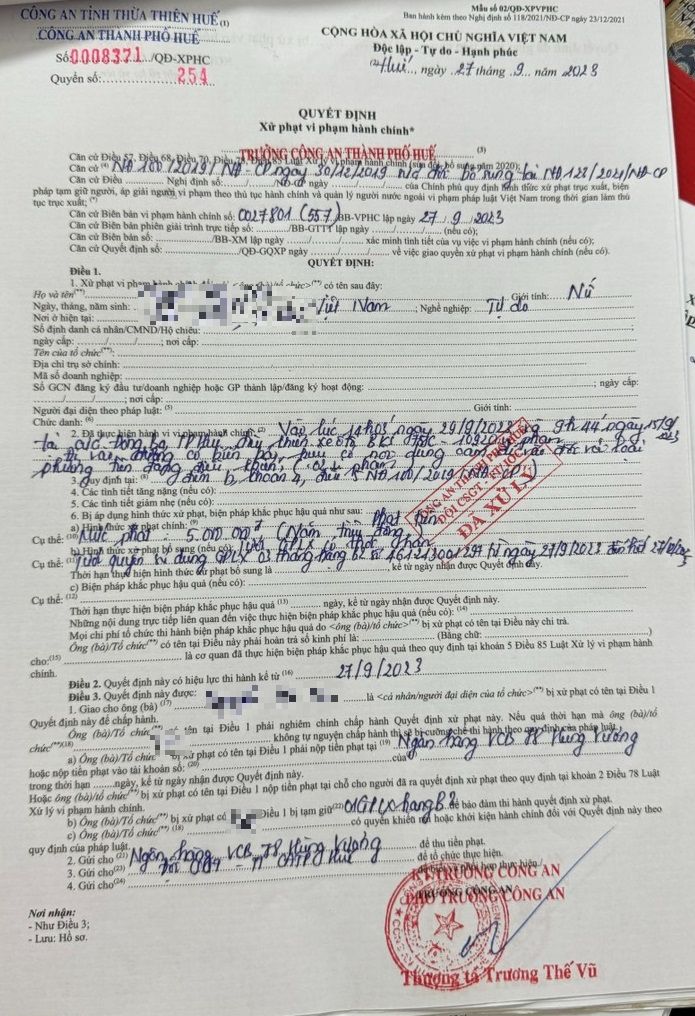 Mẫu số 02/QĐ-XPVPHC
Ban hành kèm theo Nghị định số 118/2021/NĐ-CP ngày 23/12/2021
CÔNG AN TỈNH THỪA THIÊN HUẾ (1)
CÔNG AN THÀNH PHỐ HUẾ
CỘNG HÒA XÃ HỘI CHỦ NGHĨA VIỆT NAM
Độc lập - Tự do - Hạnh phúc
Số: 0008371 /QĐ-XPHC
Quyển số: 254
(2) Huế, ngày 27 tháng 9 năm 2023
QUYẾT ĐỊNH
Xử phạt vi phạm hành chính*
TRƯỞNG CÔNG AN THÀNH PHỐ HUẾ (3)
Căn cứ Điều 57, Điều 68, Điều 70, Điều 78, Điều 85 Luật Xử lý vi phạm hành chính (sửa đổi, bổ sung năm 2020);
Căn cứ (4) NĐ 100/2019/NĐ-CP ngày 30/12/2019 bổ sung tại NĐ 123/2021/NĐ-CP
Căn cứ Điều Nghị định số: /NĐ-CP ngày / / của Chính phủ quy định hình thức xử phạt trục xuất, biện
pháp tạm giữ người, áp giải người vi phạm theo thủ tục hành chính và quản lý người nước ngoài vi phạm pháp luật Việt Nam trong thời gian làm thủ
tục trục xuất; (*)
Căn cứ Biên bản vi phạm hành chính số: 0027801 (557) /BB-VPHC lập ngày 27 / 9 / 2023
Căn cứ Biên bản phiên giải trình trực tiếp số: /BB-GTTT lập ngày / / (nếu có);
Căn cứ Biên bản số: /BB-XM lập ngày / / xác minh tình tiết của vụ việc vi phạm hành chính (nếu có);
Căn cứ Quyết định số: /QĐ-GQXP ngày / / về việc giao quyền xử phạt vi phạm hành chính (nếu có).
QUYẾT ĐỊNH:
Điều 1.
1. Xử phạt vi phạm hành chính có tên sau đây:
Họ và tên(**) Giới tính: Nữ
Ngày, tháng, năm sinh: Việt Nam; Nghề nghiệp: Tự do
Nơi ở hiện tại:
Số định danh cá nhân/CMND/Hộ chiếu:
ngày cấp: / / ; nơi cấp:
Tên của tổ chức(**):
Địa chỉ trụ sở chính:
Mã số doanh nghiệp:
Số GCN đăng ký đầu tư/doanh nghiệp hoặc GP thành lập/đăng ký hoạt động: ; ngày cấp:
/ / ; nơi cấp:
Người đại diện theo pháp luật: (5) Giới tính:
Chức danh: (6)
2. Đã thực hiện hành vi vi phạm hành chính: (7) Vào lúc 14h03 ngày 9h44 ngày 15/9
xe ôtô BKS
phương tiện đang điều khiển
3. Quy định tại: (8) điểm b, khoản 4, điều 5 NĐ 100/2019/NĐ-CP
4. Các tình tiết tăng nặng (nếu có):
5. Các tình tiết giảm nhẹ (nếu có):
6. Bị áp dụng hình thức xử phạt, biện pháp khắc phục hậu quả như sau: Phạt tiền
a) Hình thức xử phạt chính: (9)
Cụ thể: (10) Mức phạt: 5.000.000đ (Năm triệu đồng)
b) Hình thức xử phạt bổ sung (nếu có):
Cụ thể: (11) Tước quyền sử dụng GPLX 03 tháng hạng B2 số 461213001297 từ ngày 27/9/2023 đến hết
Thời hạn thực hiện hình thức xử phạt bổ sung là , kể từ ngày nhận được Quyết định này.
c) Biện pháp khắc phục hậu quả (nếu có):
Cụ thể: (12)
Thời hạn thực hiện biện pháp khắc phục hậu quả (13) ngày, kể từ ngày nhận được Quyết định này.
Những nội dung trực tiếp liên quan đến việc thực hiện biện pháp khắc phục hậu quả (nếu có): (14)
Mọi chi phí tổ chức thi hành biện pháp khắc phục hậu quả do <ông (bà)/tổ chức>(**) bị xử phạt có tên tại Điều này chi trả.
Ông (bà)/Tổ chức(**) có tên tại Điều này phải hoàn trả số kinh phí là: (Bằng chữ: )
cho:(15) là cơ quan đã thực hiện biện pháp khắc phục hậu quả theo quy định tại khoản 5 Điều 85 Luật Xử lý vi phạm hành
chính.
Điều 2. Quyết định này có hiệu lực thi hành kể từ (16) 27/9/2023
Điều 3. Quyết định này được:
1. Giao cho ông (bà) (17) là <cá nhân/người đại diện của tổ chức>(**) bị xử phạt có tên tại Điều 1
Quyết định này để chấp hành.
Ông (bà)/Tổ chức(**) có tên tại Điều 1 phải nghiêm chỉnh chấp hành Quyết định xử phạt này. Nếu quá thời hạn mà ông (bà)/tổ
chức(**)(18) không tự nguyện chấp hành thì sẽ bị cưỡng chế thi hành theo quy định của pháp luật.
a) Ông (bà)/Tổ chức(**) bị xử phạt có tên tại Điều 1 phải nộp tiền phạt tại (19) Ngân hàng VCB 78 Hùng Vương
hoặc nộp tiền phạt vào tài khoản số: (20) của
trong thời hạn ngày, kể từ ngày nhận được Quyết định này.
Hoặc ông (bà)/tổ chức(**) bị xử phạt có tên tại Điều 1 nộp tiền phạt tại chỗ cho người đã ra quyết định xử phạt theo quy định tại khoản 2 Điều 78 Luật
Xử lý vi phạm hành chính.
b) Ông (bà)/Tổ chức(**) bị xử phạt có Điều 1 bị tạm giữ(22) 01 GPLX hạng B2 để bảo đảm thi hành quyết định xử phạt.
c) Ông (bà)/Tổ chức(**) (18) có quyền khiếu nại hoặc khởi kiện hành chính đối với Quyết định này theo
quy định của pháp luật.
2. Gửi cho (21) Ngân hàng VCB, 78 Hùng Vương để thu tiền phạt.
3. Gửi cho(23) CATP Huế để tổ chức thực hiện.
4. Gửi cho(24)
CÔNG AN THÀNH PHỐ HUẾ
ĐỘI CSGT
ĐÃ XỬ LÝ
KT.TRƯỞNG CÔNG AN
TRƯỞNG CÔNG AN
PHÓ TRƯỞNG CÔNG AN
Nơi nhận:
- Như Điều 3;
- Lưu: Hồ sơ.
Thượng tá Trương Thế Vũ